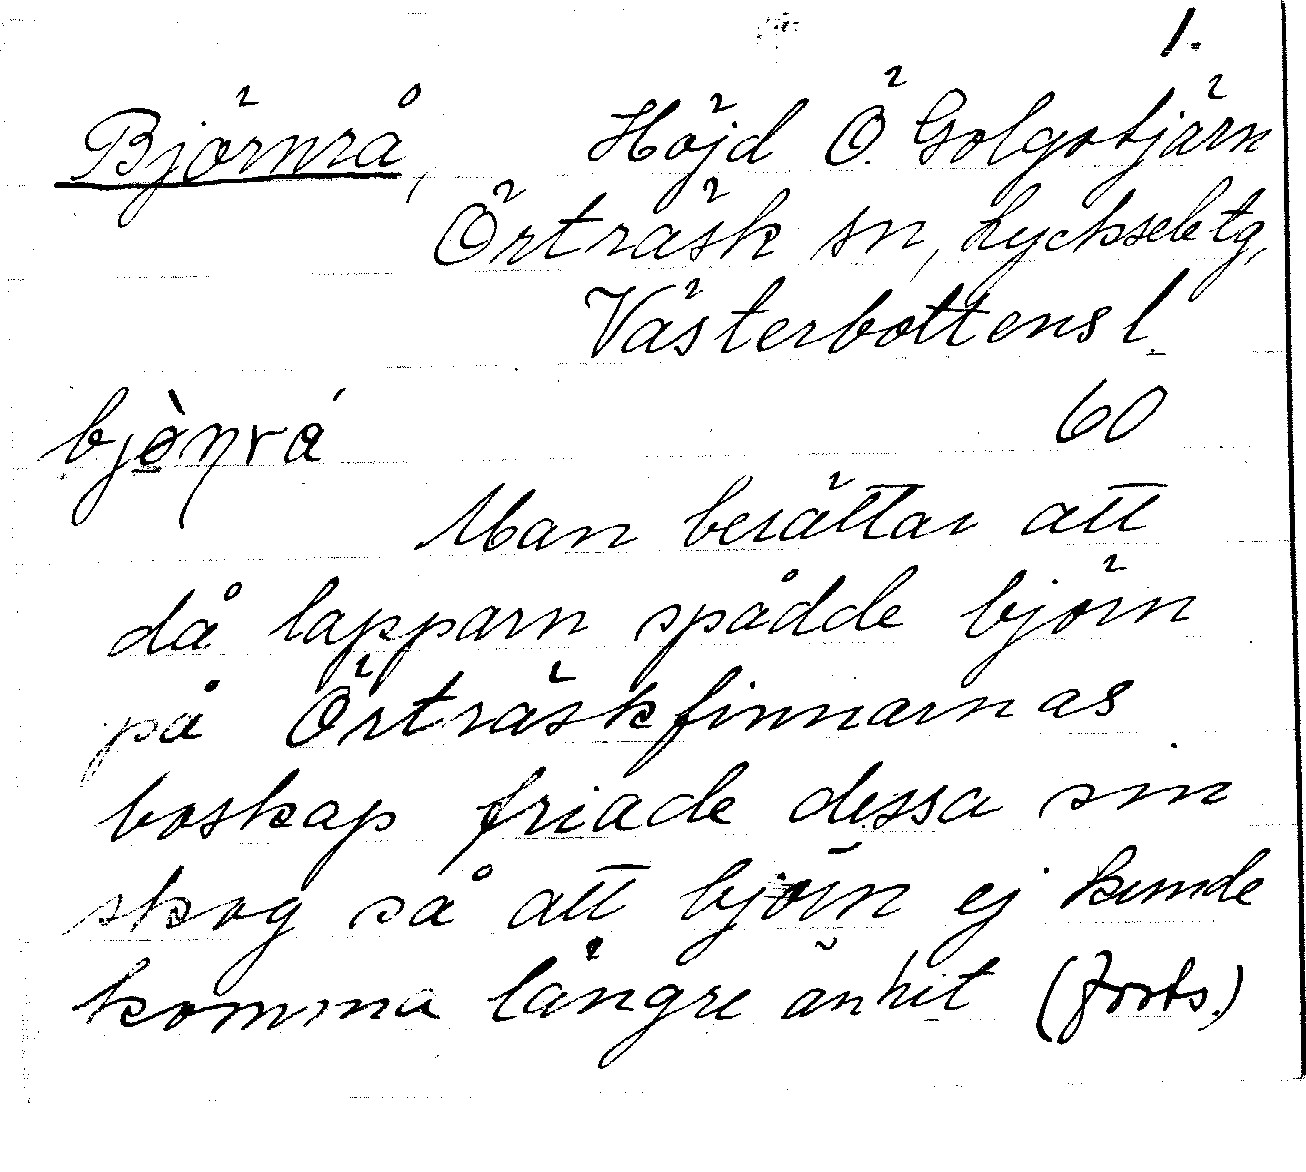 1.
Björnrå, Höjd Ö. Golgotjärn
Örträsk sn, Lycksele tg,
Västerbottens l.
bjò̲ṇrá 60
Man berättar att
då lapparn spådde björn
på Örträskfinnarnas
boskap friade dessa sin
skog så att björn ej kunde
komma längre än hit (forts.)